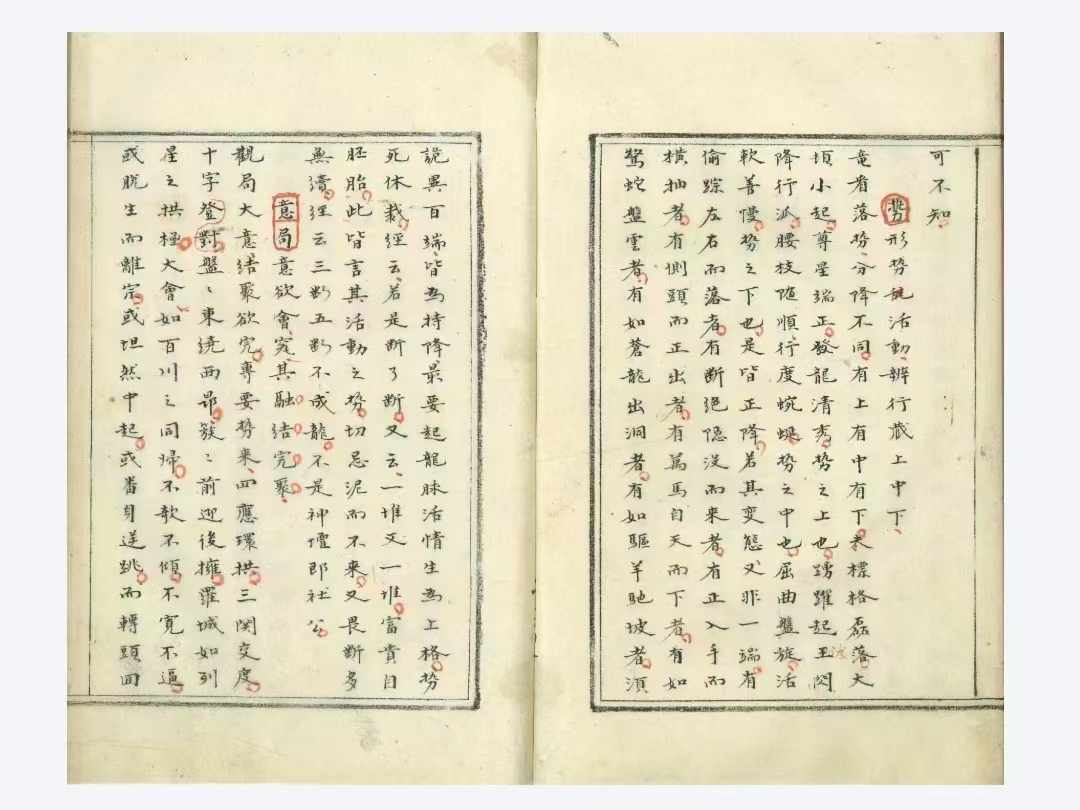 可不知
勢形势皃活動辨行藏上中下
竜看落势分降不同有上有中有下夫標格磊落大
頃小起尊星端正發龍清秀势之上也踴躍起王閃
降行泒腰枝随順行度蜿蜒势之中也屈曲盤旋活
軟善慢势之下也是皆正降若其变態又非一端有
偷踪左右而落者有断絕隐没而来者有正入手而
橫抽者有側頭而正出者有為馬自天而下者有如
驚蛇盤雲者有如蒼龍出洞者有如驅羊馳坡者須
詭異百端皆為持降最要起龍脉活情生為上格势
死休裁經云若是断了断又云一堆又一堆富貴自
胚胎此皆言其活動之势切忌泥而不来又畏断多
無續経云三断五断不成龍不是神壇即社公
意局意欲會究其融結完聚
觀局大意結聚欲完專要势来四應環拱三関交度
十字登對盤〻東繞西帶簇〻前迎後擁羅城如列
星之拱極大會如百川之同歸不欹不傾不寛不逼
或脱生而離宗或坦然中起或番身逆跳而轉頭囬